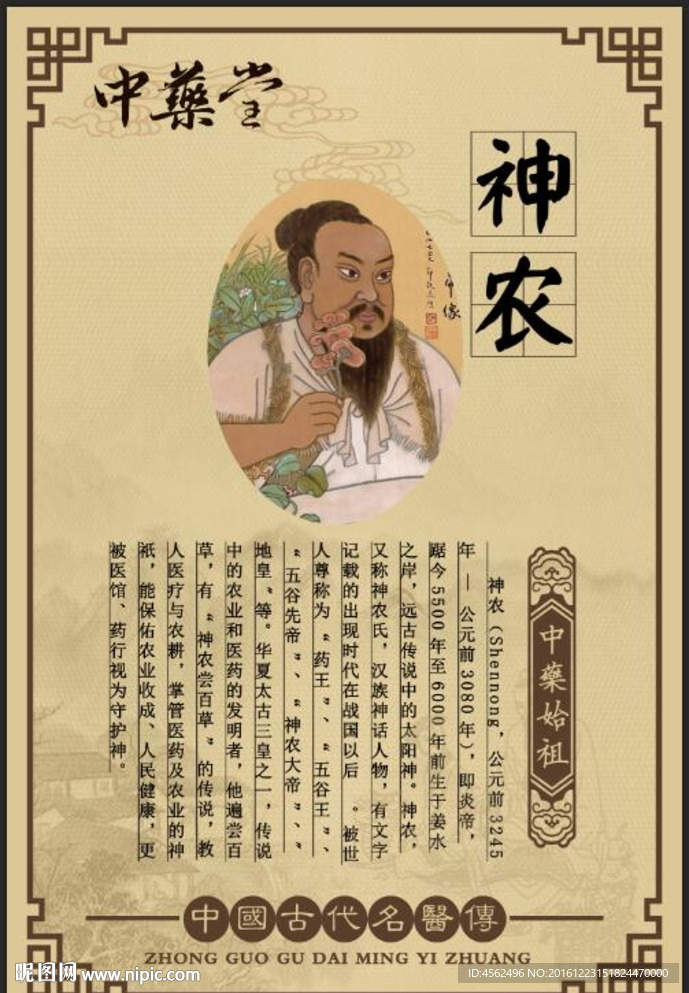 中藥堂
神农
像
中藥始祖
神农（Shennong，公元前3245
年 — 公元前3080年），即炎帝，
踞今5500年至6000年前生于姜水
之岸，远古传说中的太阳神。神农，
又称神农氏，汉族神话人物，有文字
记载的出现时代在战国以后 。被世
人尊称为“药王”、“五谷王”、
“五谷先帝”、“神农大帝”、“
地皇”等。华夏太古三皇之一，传说
中的农业和医药的发明者，他遍尝百
草，有“神农尝百草”的传说，教
人医疗与农耕，掌管医药及农业的神
祇，能保佑农业收成、人民健康，更
被医馆、药行视为守护神。
中國古代名醫傳
ZHONG GUO GU DAI MING YI ZHUANG
昵图网 www.nipic.com
ID:4562496 NO:20161223151824470000